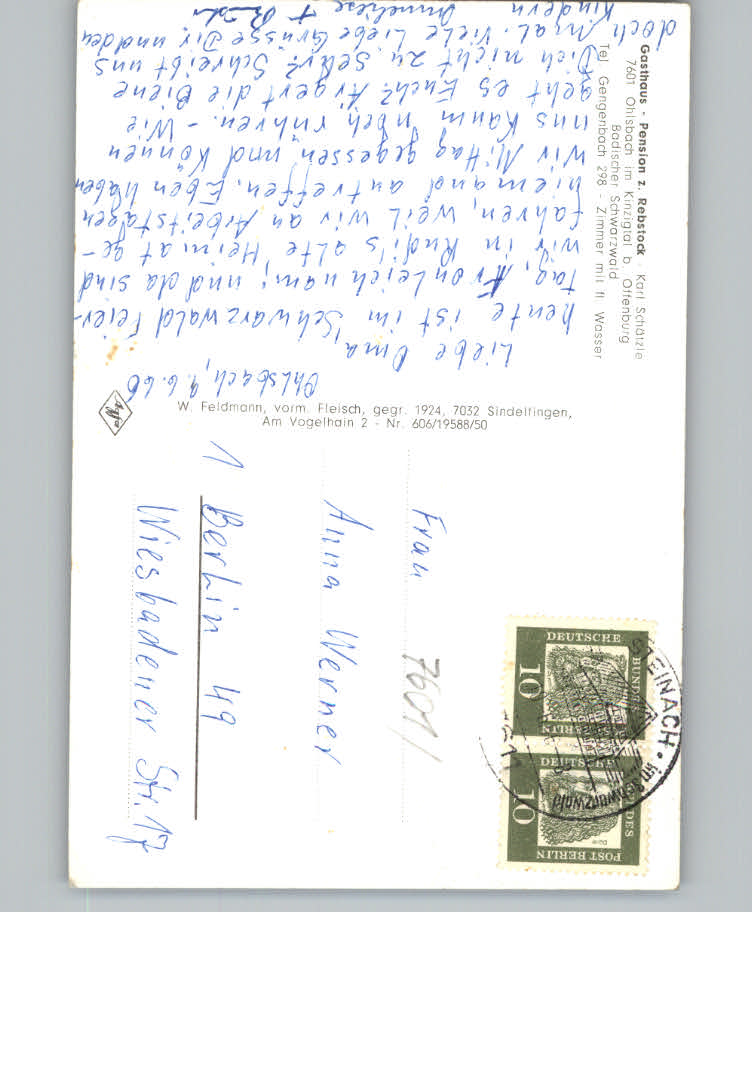 Gasthaus - Pension z. Rebstock - Karl Schätzle
7601 Ohlsbach im Kinzigtal b. Offenburg
Badischer Schwarzwald
Tel. Gengenbach 298 - Zimmer mit fl. Wasser
Ohlsbach, 9.6.66
Liebe Oma,
heute ist im Schwarzwald Feier-
tag, Fronleichnam, und da sind
wir in Rudi's alte Heimat ge-
fahren, weil wir an Arbeitstagen
niemand antreffen. Eben haben
wir Mittag gegessen und können
uns kaum noch rühren. - Wie
geht es Euch? Ärgert die Biene
Dich nicht zu sehr? Schreibt uns
doch mal. Viele liebe Grüsse Dir und den
Kindern Anneliese +
W. Feldmann, vorm. Fleisch, gegr. 1924, 7032 Sindelfingen,
Am Vogelhain 2 - Nr. 606/19588/50
Agfa
Frau
Anna Werner
1 Berlin 49
Wiesbadener Str. 17
7601/
DEUTSCHE
BUNDES
POST BERLIN
10
DEUTSCHE
BUNDES
POST BERLIN
10
Dürer
STEINACH
im Schwarzwald